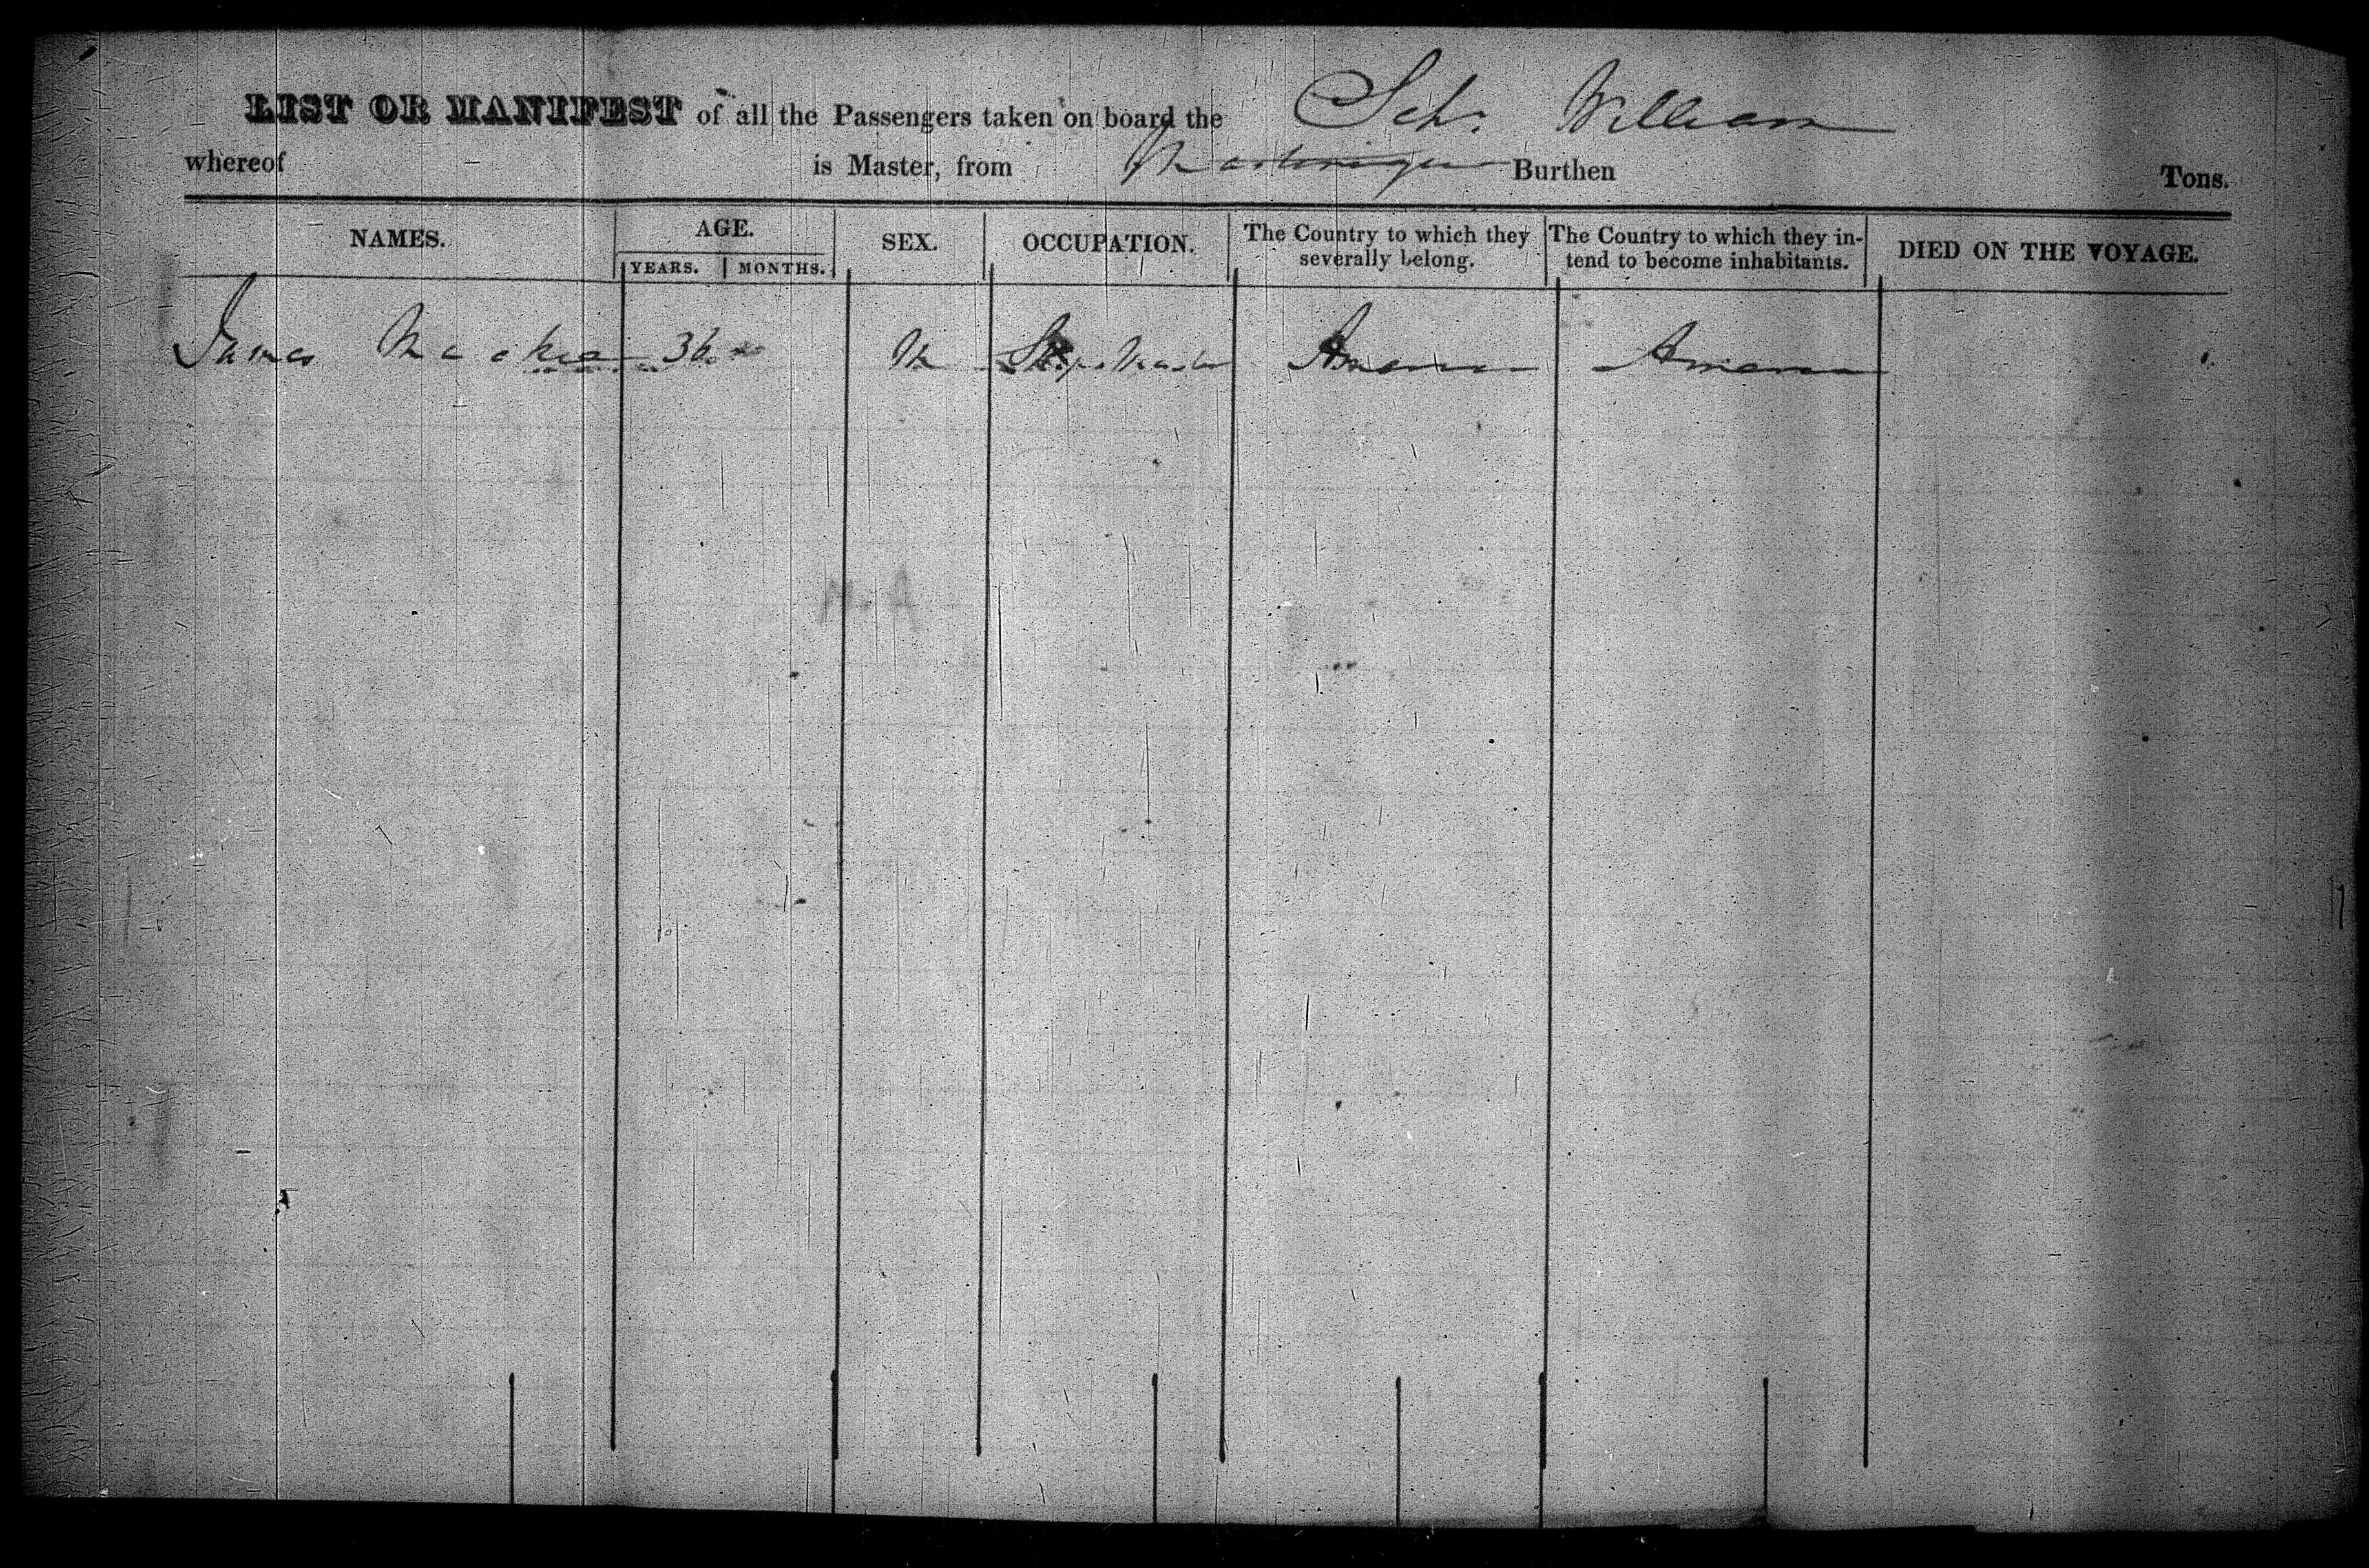 LIST OR MANIFEST of all the Passengers taken on board the Schr William
whereof is Master, from Martinique Burthen Tons.
NAMES. AGE. SEX. OCCUPATION. The Country to which they severally belong. The Country to which they intend to become inhabitants. DIED ON THE VOYAGE.
YEARS. MONTHS.
James Mackie 36 M Ship Master America America
N.A